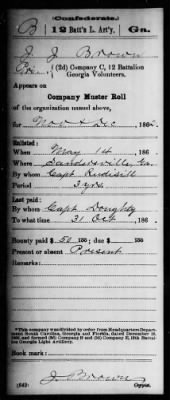 (Confederate.)
B | 12 Batt'n L. Art'y. | Ga.
J J Brown
Pvt., (2d) Company C, 12 Battalion
Georgia Volunteers.
Appears on
Company Muster Roll
of the organization named above,
for Nov & Dec, 186
Enlisted:
When May 14, 186
Where Sandersville, Ga.
By whom Capt Rudisill
Period 3 yrs
Last paid:
By whom Capt Doughty
To what time 31 Oct, 186
Bounty paid $ 50 100; due $ 100
Present or absent Present
Remarks:
*This company was divided by order from Headquarters Department
South Carolina, Georgia and Florida, dated December
and formed (2d) Company B and (2d) Company E, 12th Battalion
Georgia Light Artillery.
Book mark:
J. Brown
(642) Copyist.